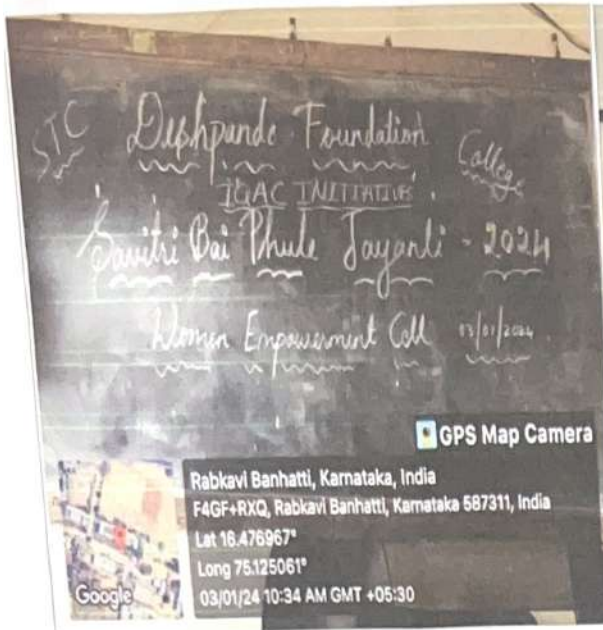 STC Deshpande Foundation College
IQAC INITIATIVES
Savitri Bai Phule Jayanti - 2024
Women Empowerment Cell 03/01/2024
GPS Map Camera
Rabkavi Banhatti, Karnataka, India
F4GF+RXQ, Rabkavi Banhatti, Karnataka 587311, India
Lat 16.476967°
Long 75.125061°
03/01/24 10:34 AM GMT +05:30
Google